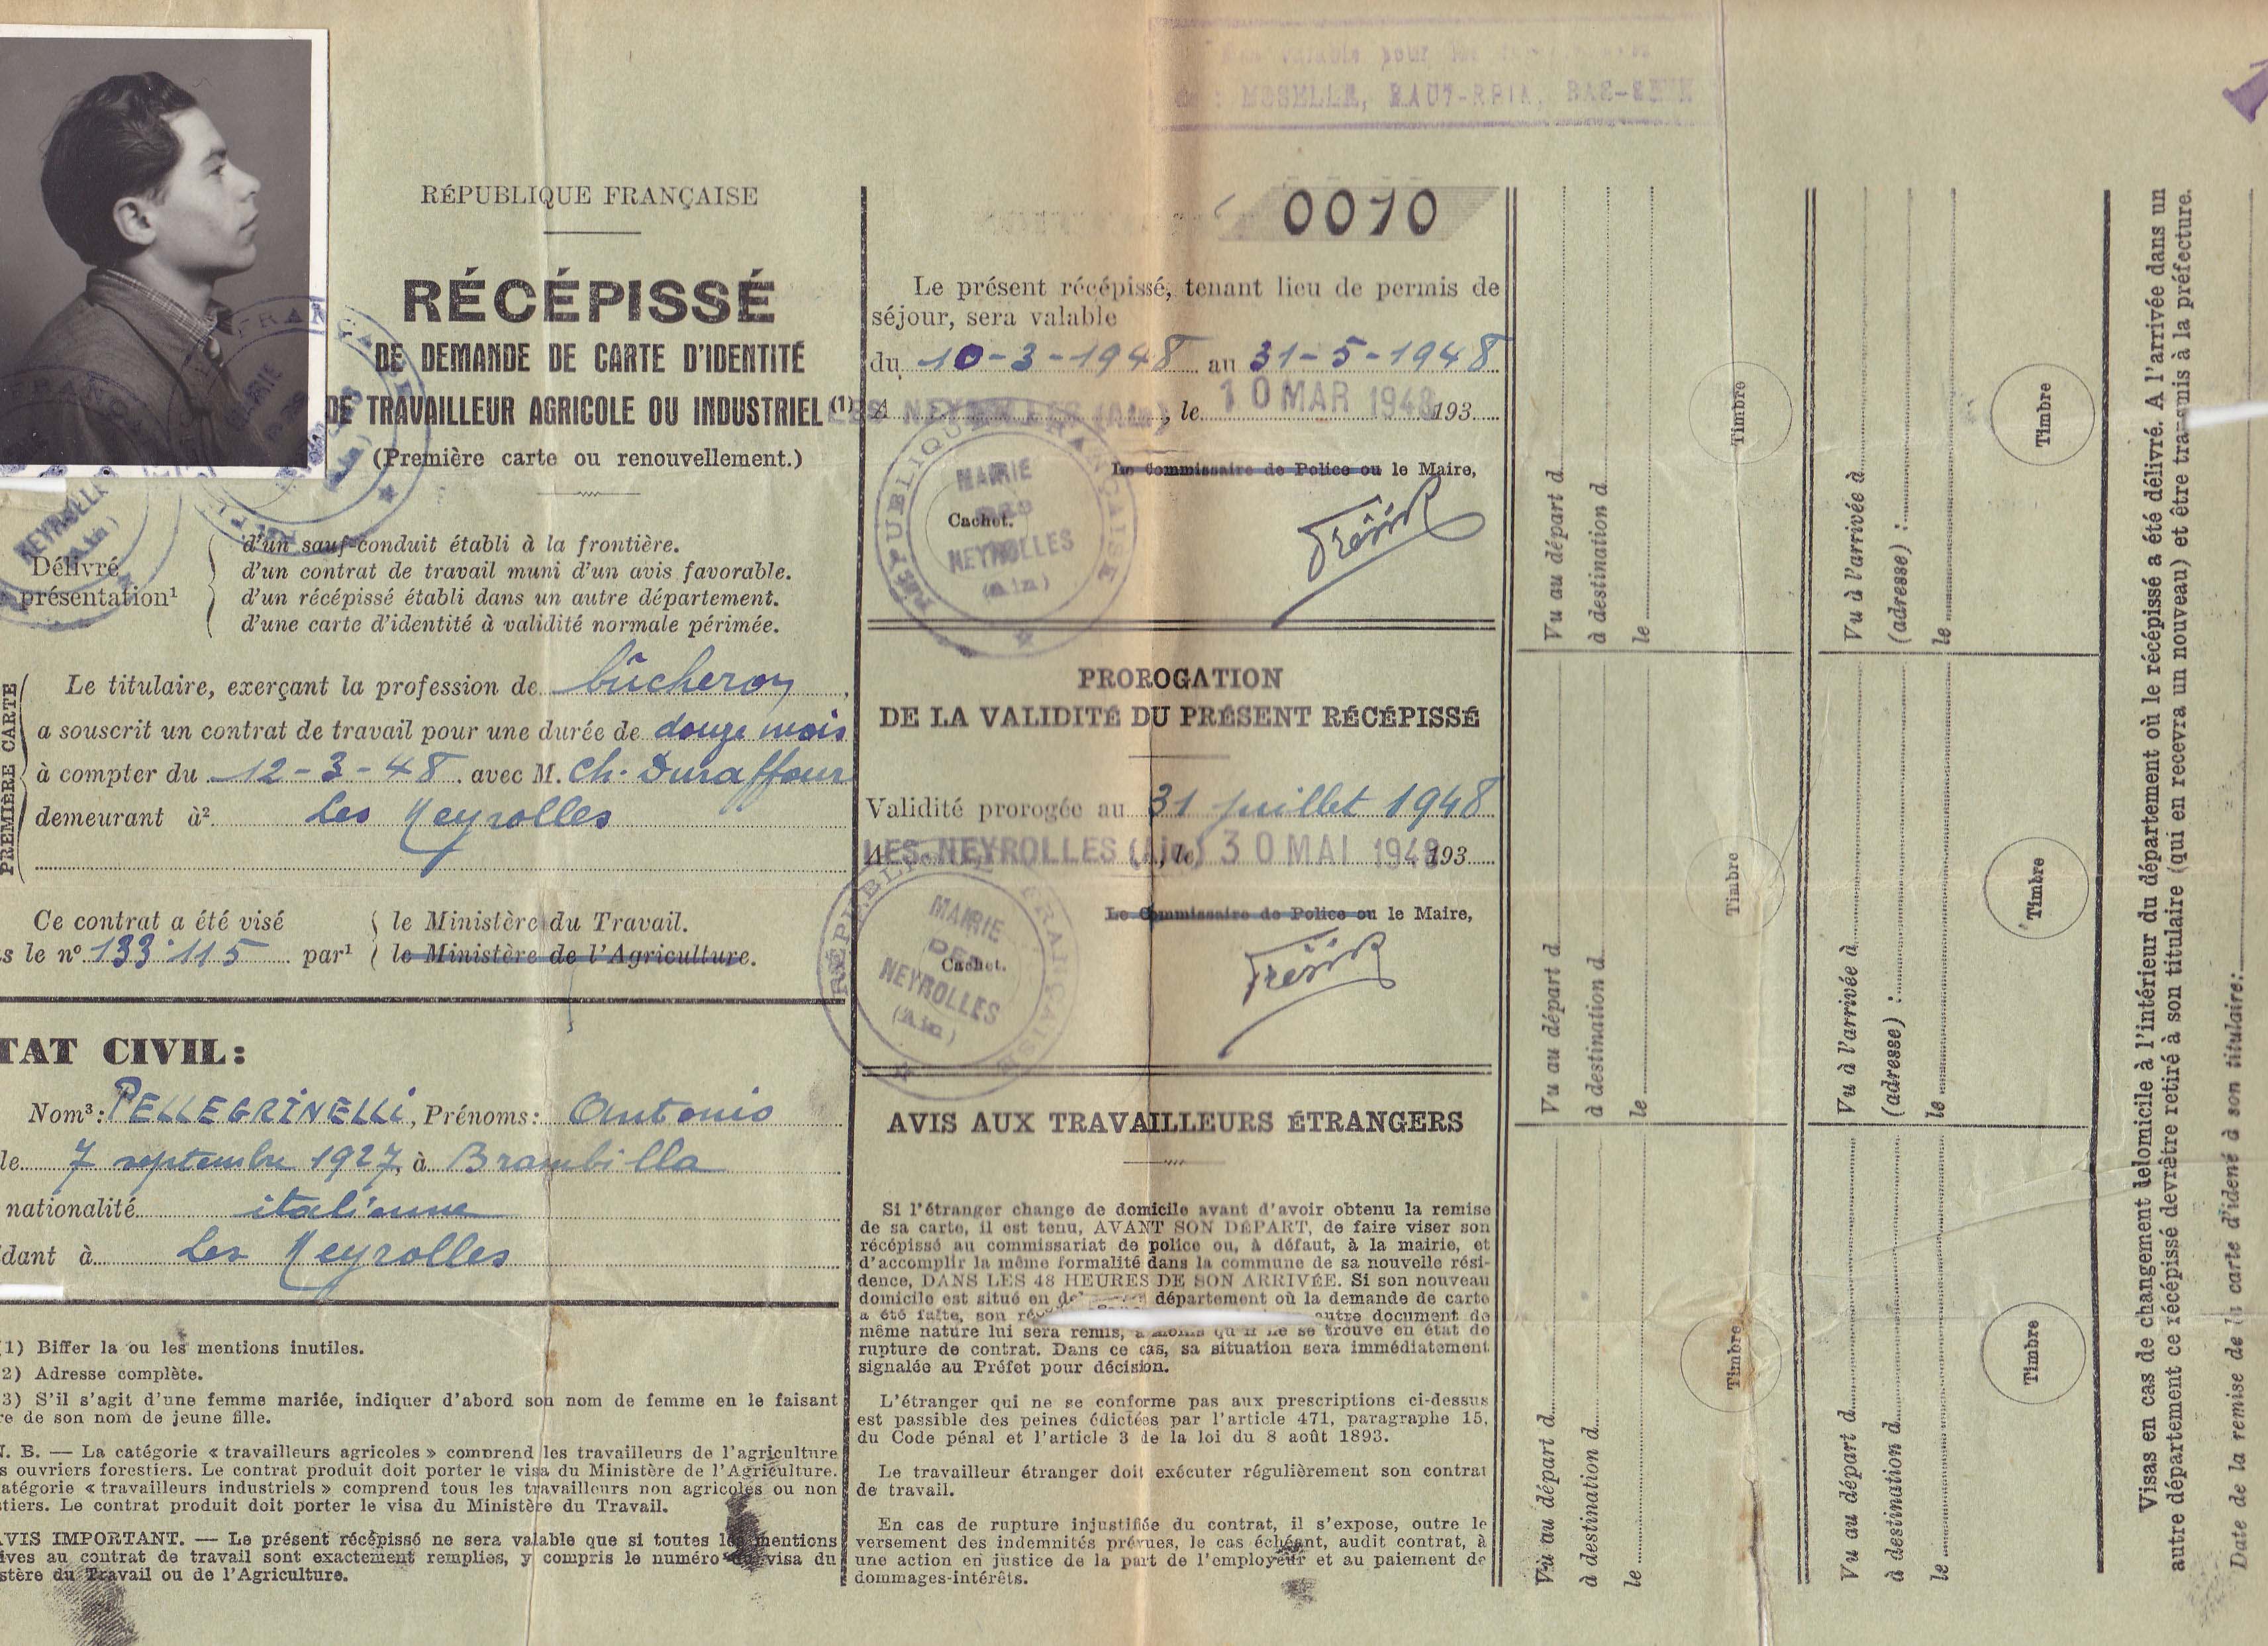 MOSELLE, HAUT-RHIN, BAS-RHIN
RÉPUBLIQUE FRANÇAISE
RÉCÉPISSÉ
DE DEMANDE DE CARTE D'IDENTITÉ
DE TRAVAILLEUR AGRICOLE OU INDUSTRIEL (1)
(Première carte ou renouvellement.)
Délivré
présentation¹
d'un sauf-conduit établi à la frontière.
d'un contrat de travail muni d'un avis favorable.
d'un récépissé établi dans un autre département.
d'une carte d'identité à validité normale périmée.
PREMIÈRE CARTE
Le titulaire, exerçant la profession de bûcheron,
a souscrit un contrat de travail pour une durée de douze mois
à compter du 12-3-48 avec M. Ch. Duraffour
demeurant à². Les Neyrolles
Ce contrat a été visé
s le nº 133.115 par¹
le Ministère du Travail.
le Ministère de l'Agriculture.
TAT CIVIL:
Nom³: PELLEGRINELLI, Prénoms: Antonio
le 7 septembre 1927 à Brambilla
nationalité italienne
dant à Les Neyrolles
1) Biffer la ou les mentions inutiles.
2) Adresse complète.
3) S'il s'agit d'une femme mariée, indiquer d'abord son nom de femme en le faisant
re de son nom de jeune fille.
. B. — La catégorie « travailleurs agricoles » comprend les travailleurs de l'agriculture
s ouvriers forestiers. Le contrat produit doit porter le visa du Ministère de l'Agriculture.
atégorie « travailleurs industriels » comprend tous les travailleurs non agricoles ou non
stiers. Le contrat produit doit porter le visa du Ministère du Travail.
AVIS IMPORTANT. — Le présent récépissé ne sera valable que si toutes les mentions
ives au contrat de travail sont exactement remplies, y compris le numéro du visa du
stère du Travail ou de l'Agriculture.
0010
Le présent récépissé, tenant lieu de permis de
séjour, sera valable
du 10-3-1948 au 31-5-1948
A LES NEYROLLES (Ain), le 10 MAR 1948 193
Le Commissaire de Police ou le Maire,
Cachet.
RÉPUBLIQUE FRANÇAISE
MAIRIE
DES
NEYROLLES
(Ain)
PROROGATION
DE LA VALIDITÉ DU PRÉSENT RÉCÉPISSÉ
Validité prorogée au 31 juillet 1948
A LES NEYROLLES (Ain), le 30 MAI 1948 193
Le Commissaire de Police ou le Maire,
Cachet.
RÉPUBLIQUE FRANÇAISE
MAIRIE
DES
NEYROLLES
(Ain)
AVIS AUX TRAVAILLEURS ÉTRANGERS
Si l'étranger change de domicile avant d'avoir obtenu la remise
de sa carte, il est tenu, AVANT SON DÉPART, de faire viser son
récépissé au commissariat de police ou, à défaut, à la mairie, et
d'accomplir la même formalité dans la commune de sa nouvelle rési-
dence, DANS LES 48 HEURES DE SON ARRIVÉE. Si son nouveau
domicile est situé en département où la demande de carte
a été faite, son autre document de
même nature lui sera remis, à moins qu'il ne se trouve en état de
rupture de contrat. Dans ce cas, sa situation sera immédiatement
signalée au Préfet pour décision.
L'étranger qui ne se conforme pas aux prescriptions ci-dessus
est passible des peines édictées par l'article 471, paragraphe 15,
du Code pénal et l'article 3 de la loi du 8 août 1893.
Le travailleur étranger doit exécuter régulièrement son contrat
de travail.
En cas de rupture injustifiée du contrat, il s'expose, outre le
versement des indemnités prévues, le cas échéant, audit contrat, à
une action en justice de la part de l'employeur et au paiement de
dommages-intérêts.
Vu au départ d
à destination d
le
Timbre
Vu au départ d
à destination d
le
Timbre
Vu au départ d
à destination d
le
Timbre
Vu à l'arrivée à
(adresse) :
le
Timbre
Vu à l'arrivée à
(adresse) :
le
Timbre
Vu au départ d
à destination d
le
Timbre
Visas en cas de changement de domicile à l'intérieur du département où le récépissé a été délivré. A l'arrivée dans un
autre département ce récépissé devra être retiré à son titulaire (qui en recevra un nouveau) et être transmis à la préfecture.
Date de la remise de la carte d'identité à son titulaire: